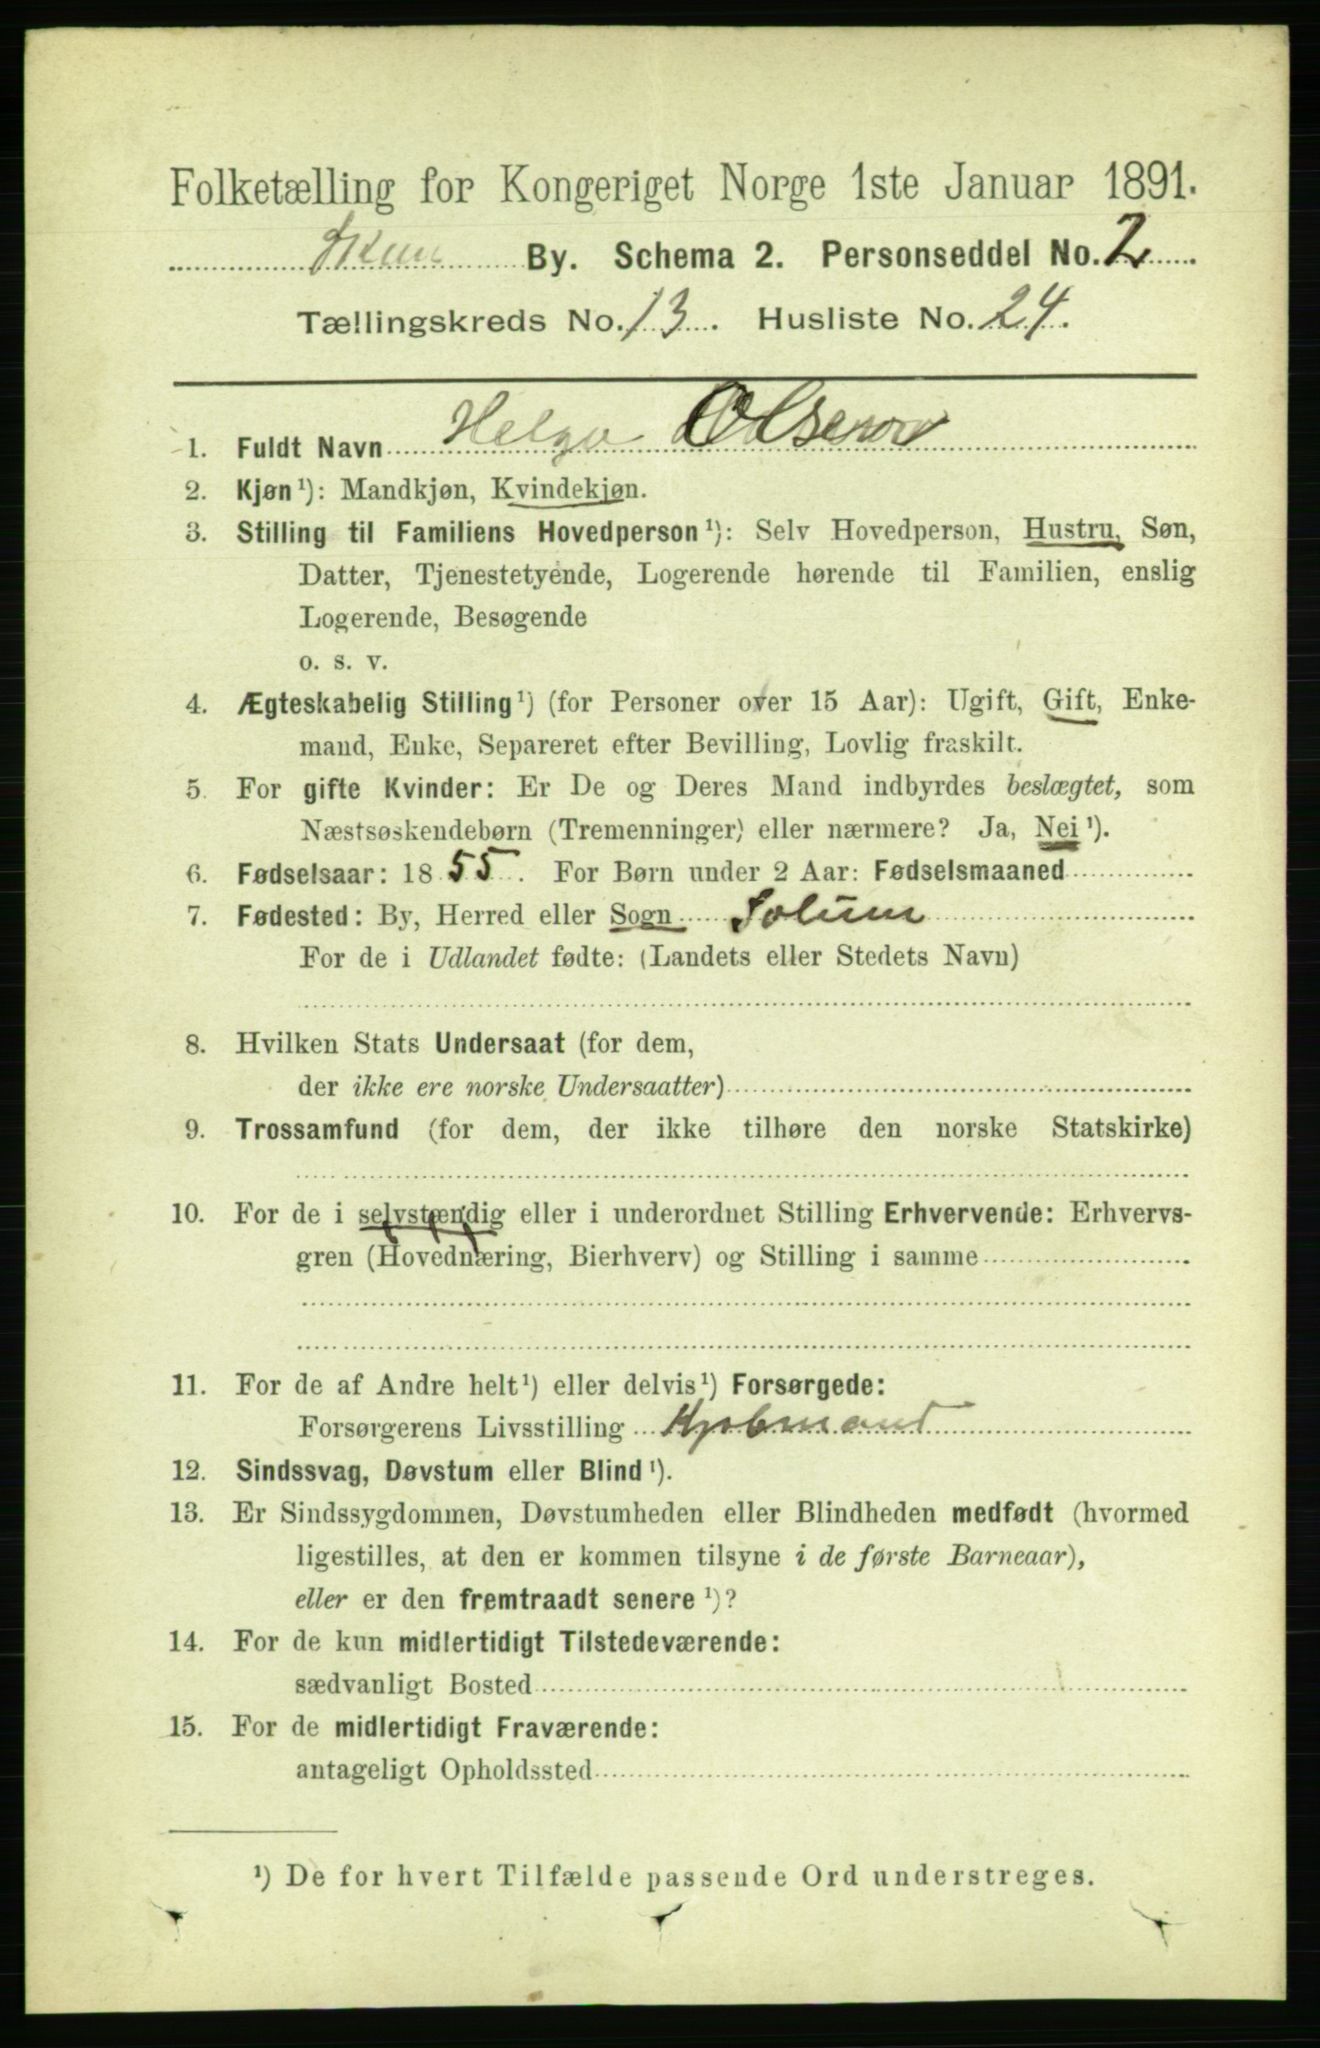 Folketælling for Kongeriget Norge 1ste Januar 1891.
Skien By. Schema 2. Personseddel No. 2
Tællingskreds No. 13. Husliste No. 24.
1. Fuldt Navn Helga Olsen
2. Kjøn¹): Mandkjøn, Kvindekjøn.
3. Stilling til Familiens Hovedperson¹): Selv Hovedperson, Hustru, Søn,
Datter, Tjenestetyende, Logerende hørende til Familien, enslig
Logerende, Besøgende
o. s. v.
4. Ægteskabelig Stilling¹) (for Personer over 15 Aar): Ugift, Gift, Enke-
mand, Enke, Separeret efter Bevilling, Lovlig fraskilt.
5. For gifte Kvinder: Er De og Deres Mand indbyrdes beslægtet, som
Næstsøskendebørn (Tremenninger) eller nærmere? Ja, Nei¹).
6. Fødselsaar: 1855. For Børn under 2 Aar: Fødselsmaaned
7. Fødested: By, Herred eller Sogn Solum
For de i Udlandet fødte: (Landets eller Stedets Navn)
8. Hvilken Stats Undersaat (for dem,
der ikke ere norske Undersaatter)
9. Trossamfund (for dem, der ikke tilhøre den norske Statskirke)
10. For de i selvstændig eller i underordnet Stilling Erhvervende: Erhvervs-
gren (Hovednæring, Bierhverv) og Stilling i samme
11. For de af Andre helt¹) eller delvis¹) Forsørgede:
Forsørgerens Livsstilling Kjøbmand
12. Sindssvag, Døvstum eller Blind¹).
13. Er Sindssygdommen, Døvstumheden eller Blindheden medfødt (hvormed
ligestilles, at den er kommen tilsyne i de første Barneaar),
eller er den fremtraadt senere¹)?
14. For de kun midlertidigt Tilstedeværende:
sædvanligt Bosted
15. For de midlertidigt Fraværende:
antageligt Opholdssted
¹) De for hvert Tilfælde passende Ord understreges.